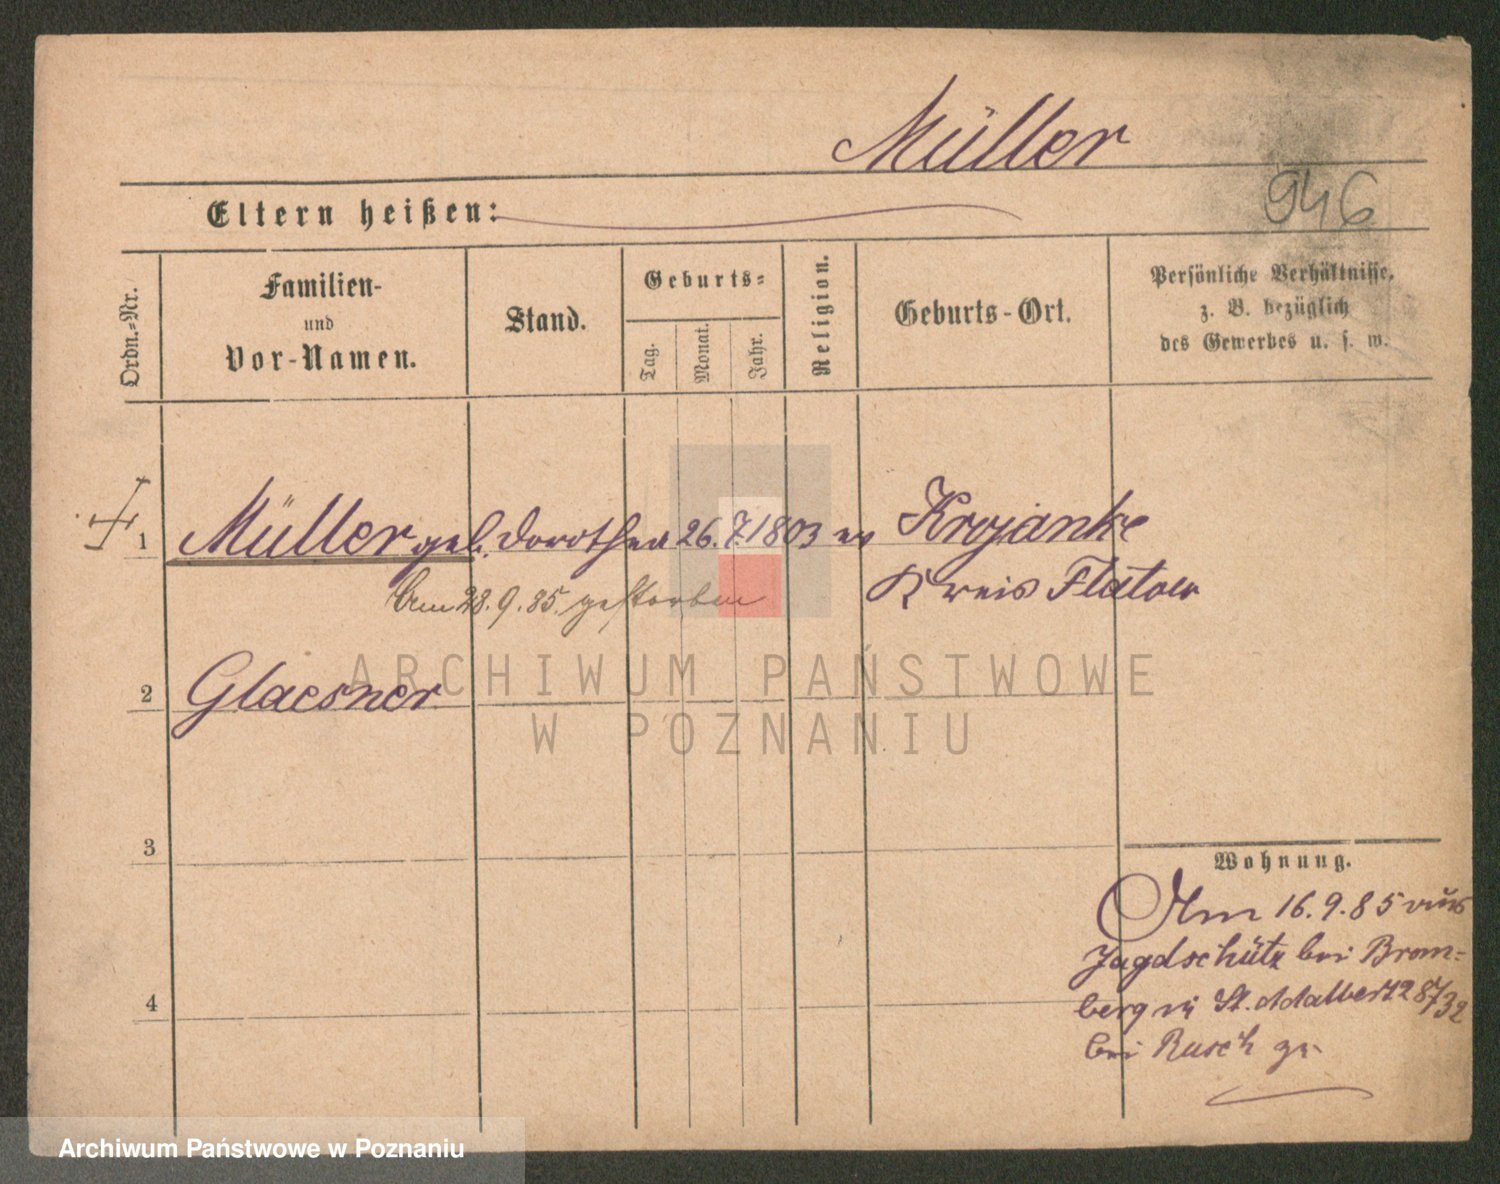 Müller
946
Eltern heißen:
Ordn.-Nr.
Familien-
und
Vor-Namen.
Stand.
Geburts-
Tag.
Monat.
Jahr.
Religion.
Geburts-Ort.
Persönliche Verhältnisse,
z. B. bezüglich
des Gewerbes u. s. w.
1 Müller geb. Dorothea 26.7.1803 ev Krojanke
Am 28.9.85. gestorben Kreis Flatow
ARCHIWUM PAŃSTWOWE
W POZNANIU
2 Glaesner
3
Wohnung.
Am 16.9.85 aus
Jagdschütz bei Brom-
berg n St. Adalbert
4
bei Rusch
Archiwum Państwowe w Poznaniu